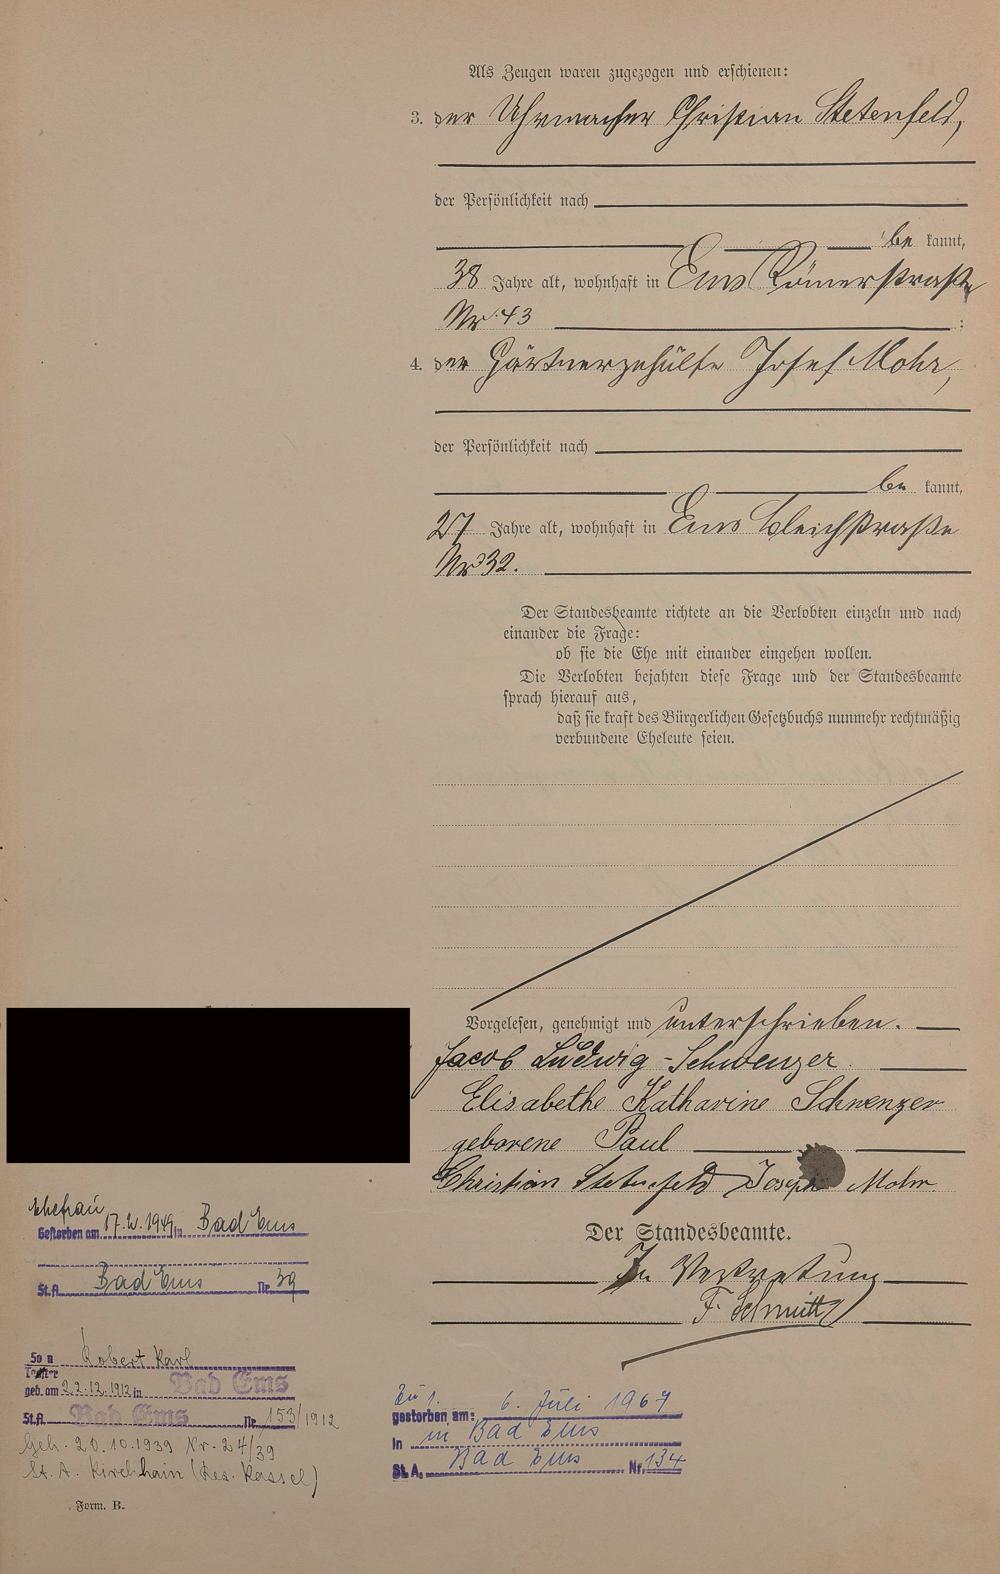 Als Zeugen waren zugezogen und erschienen:
3. der Uhrmacher Christian Stetenfeld,
der Persönlichkeit nach
be kannt,
38 Jahre alt, wohnhaft in Ems Römerstraße
Nr. 43 ;
4. der Gärtnergehülfe Josef Mohr,
der Persönlichkeit nach
be kannt,
27 Jahre alt, wohnhaft in Ems Bleichstraße
Nr 32.
Der Standesbeamte richtete an die Verlobten einzeln und nach
einander die Frage:
ob sie die Ehe mit einander eingehen wollen.
Die Verlobten bejahten diese Frage und der Standesbeamte
sprach hierauf aus,
daß sie kraft des Bürgerlichen Gesetzbuchs nunmehr rechtmäßig
verbundene Eheleute seien.
Vorgelesen, genehmigt und unterschrieben.
Jacob Ludwig Schwenzer
Elisabethe Katharine Schwenzer
geborene Paul
Christian Stetenfeld Joseph Mohr.
Der Standesbeamte.
In Vertretung
F. Schmitt
Ehefrau
Gestorben am 1949 in Bad Ems
St.A. Bad Ems Nr. 39
Sohn Robert Karl
Tochter
geb. am 22.12.1912 in Bad Ems
St.A. Bad Ems Nr. 153/1912
Geh. 20.10.1939 Nr. 24/39
St. A. Kirchhain (Bez. Kassel)
Zu 1.
gestorben am: 6. Juli 1967
in in Bad Ems
St. A. Bad Ems Nr. 134
Form. B.